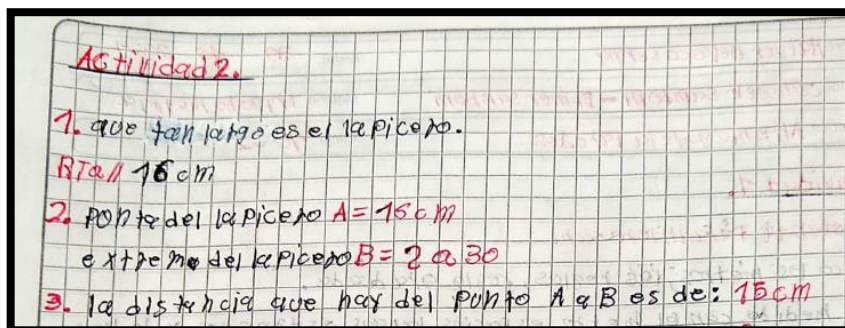 Actividad 2.
1. que tan largo es el lapicero.
RTa// 16 cm
2. ponta del lapicero A = 15 cm
extremo del lapicero B = 2 a 30
3. la distancia que hay del punto A a B es de: 15 cm